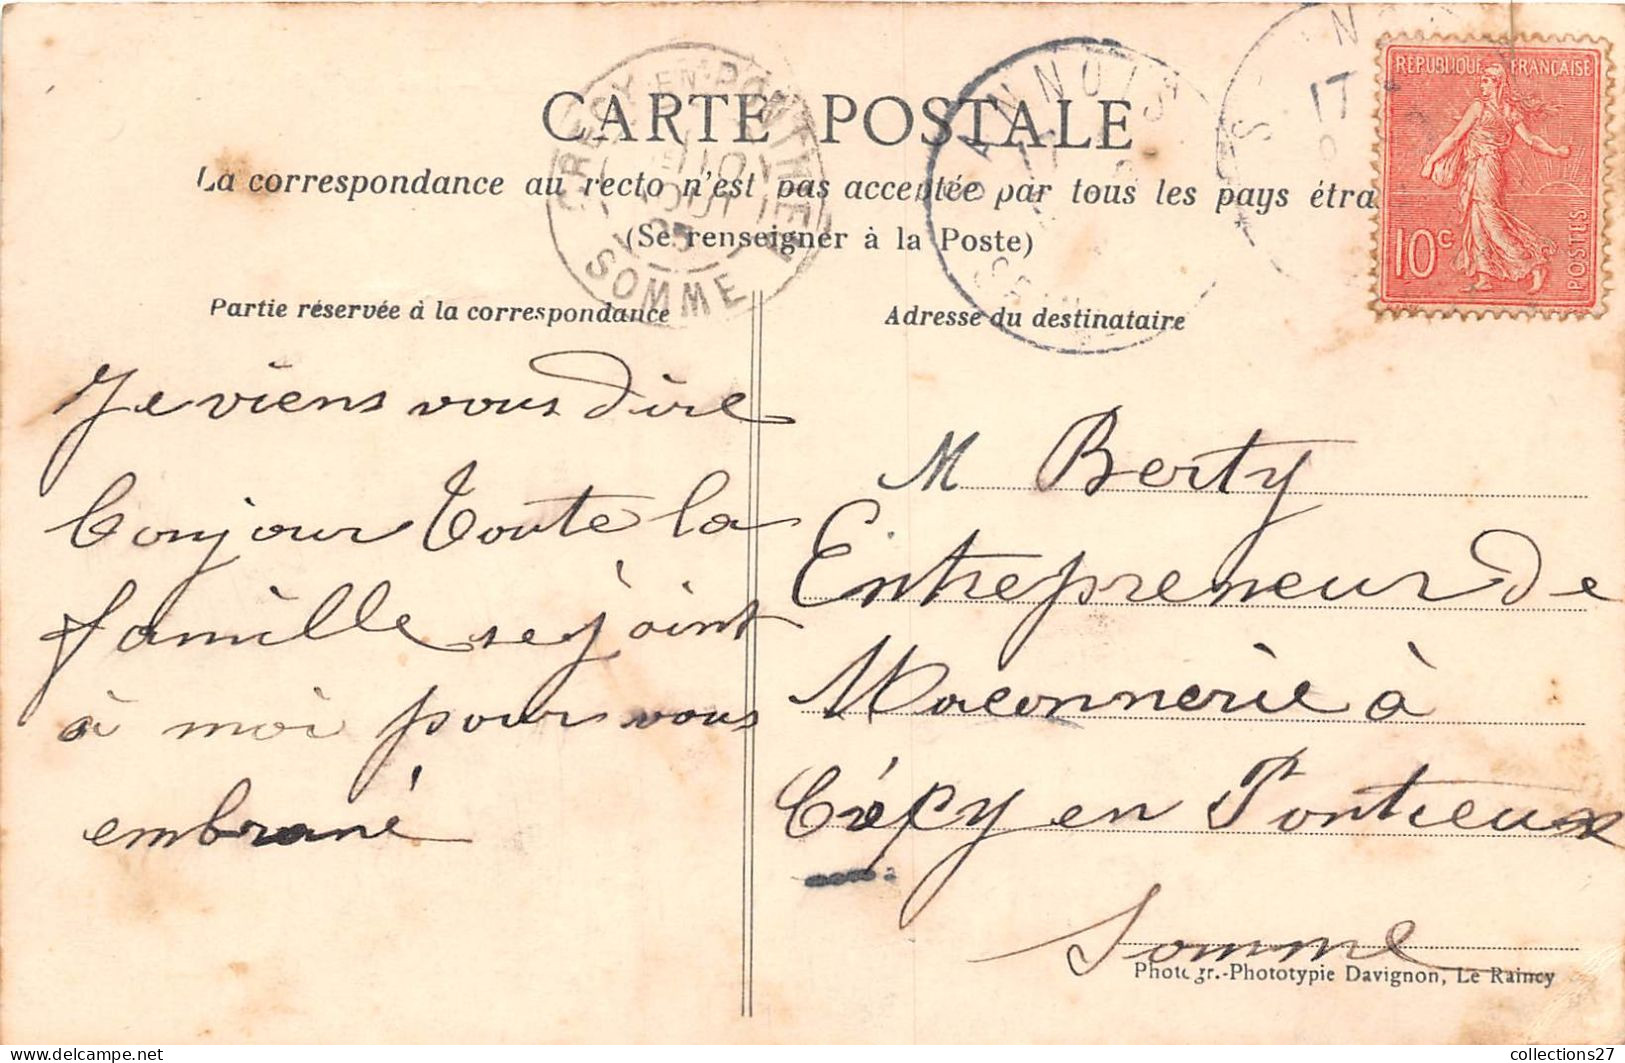 CARTE POSTALE
La correspondance au recto n'est pas acceptée par tous les pays étra
(Se renseigner à la Poste)
Partie réservée à la correspondance
Adresse du destinataire
RÉPUBLIQUE FRANÇAISE
10c
POSTES
CRECY-EN-PONTHIEU
SOMME
17
Je viens vous dire
bonjour toute la
famille se joint
à moi pour vous
embrané
M Berty
Entrepreneur de
Maconnerie à
Crécy en Pontieux
Somme
Photogr.-Phototypie Davignon, Le Raincy
collections27